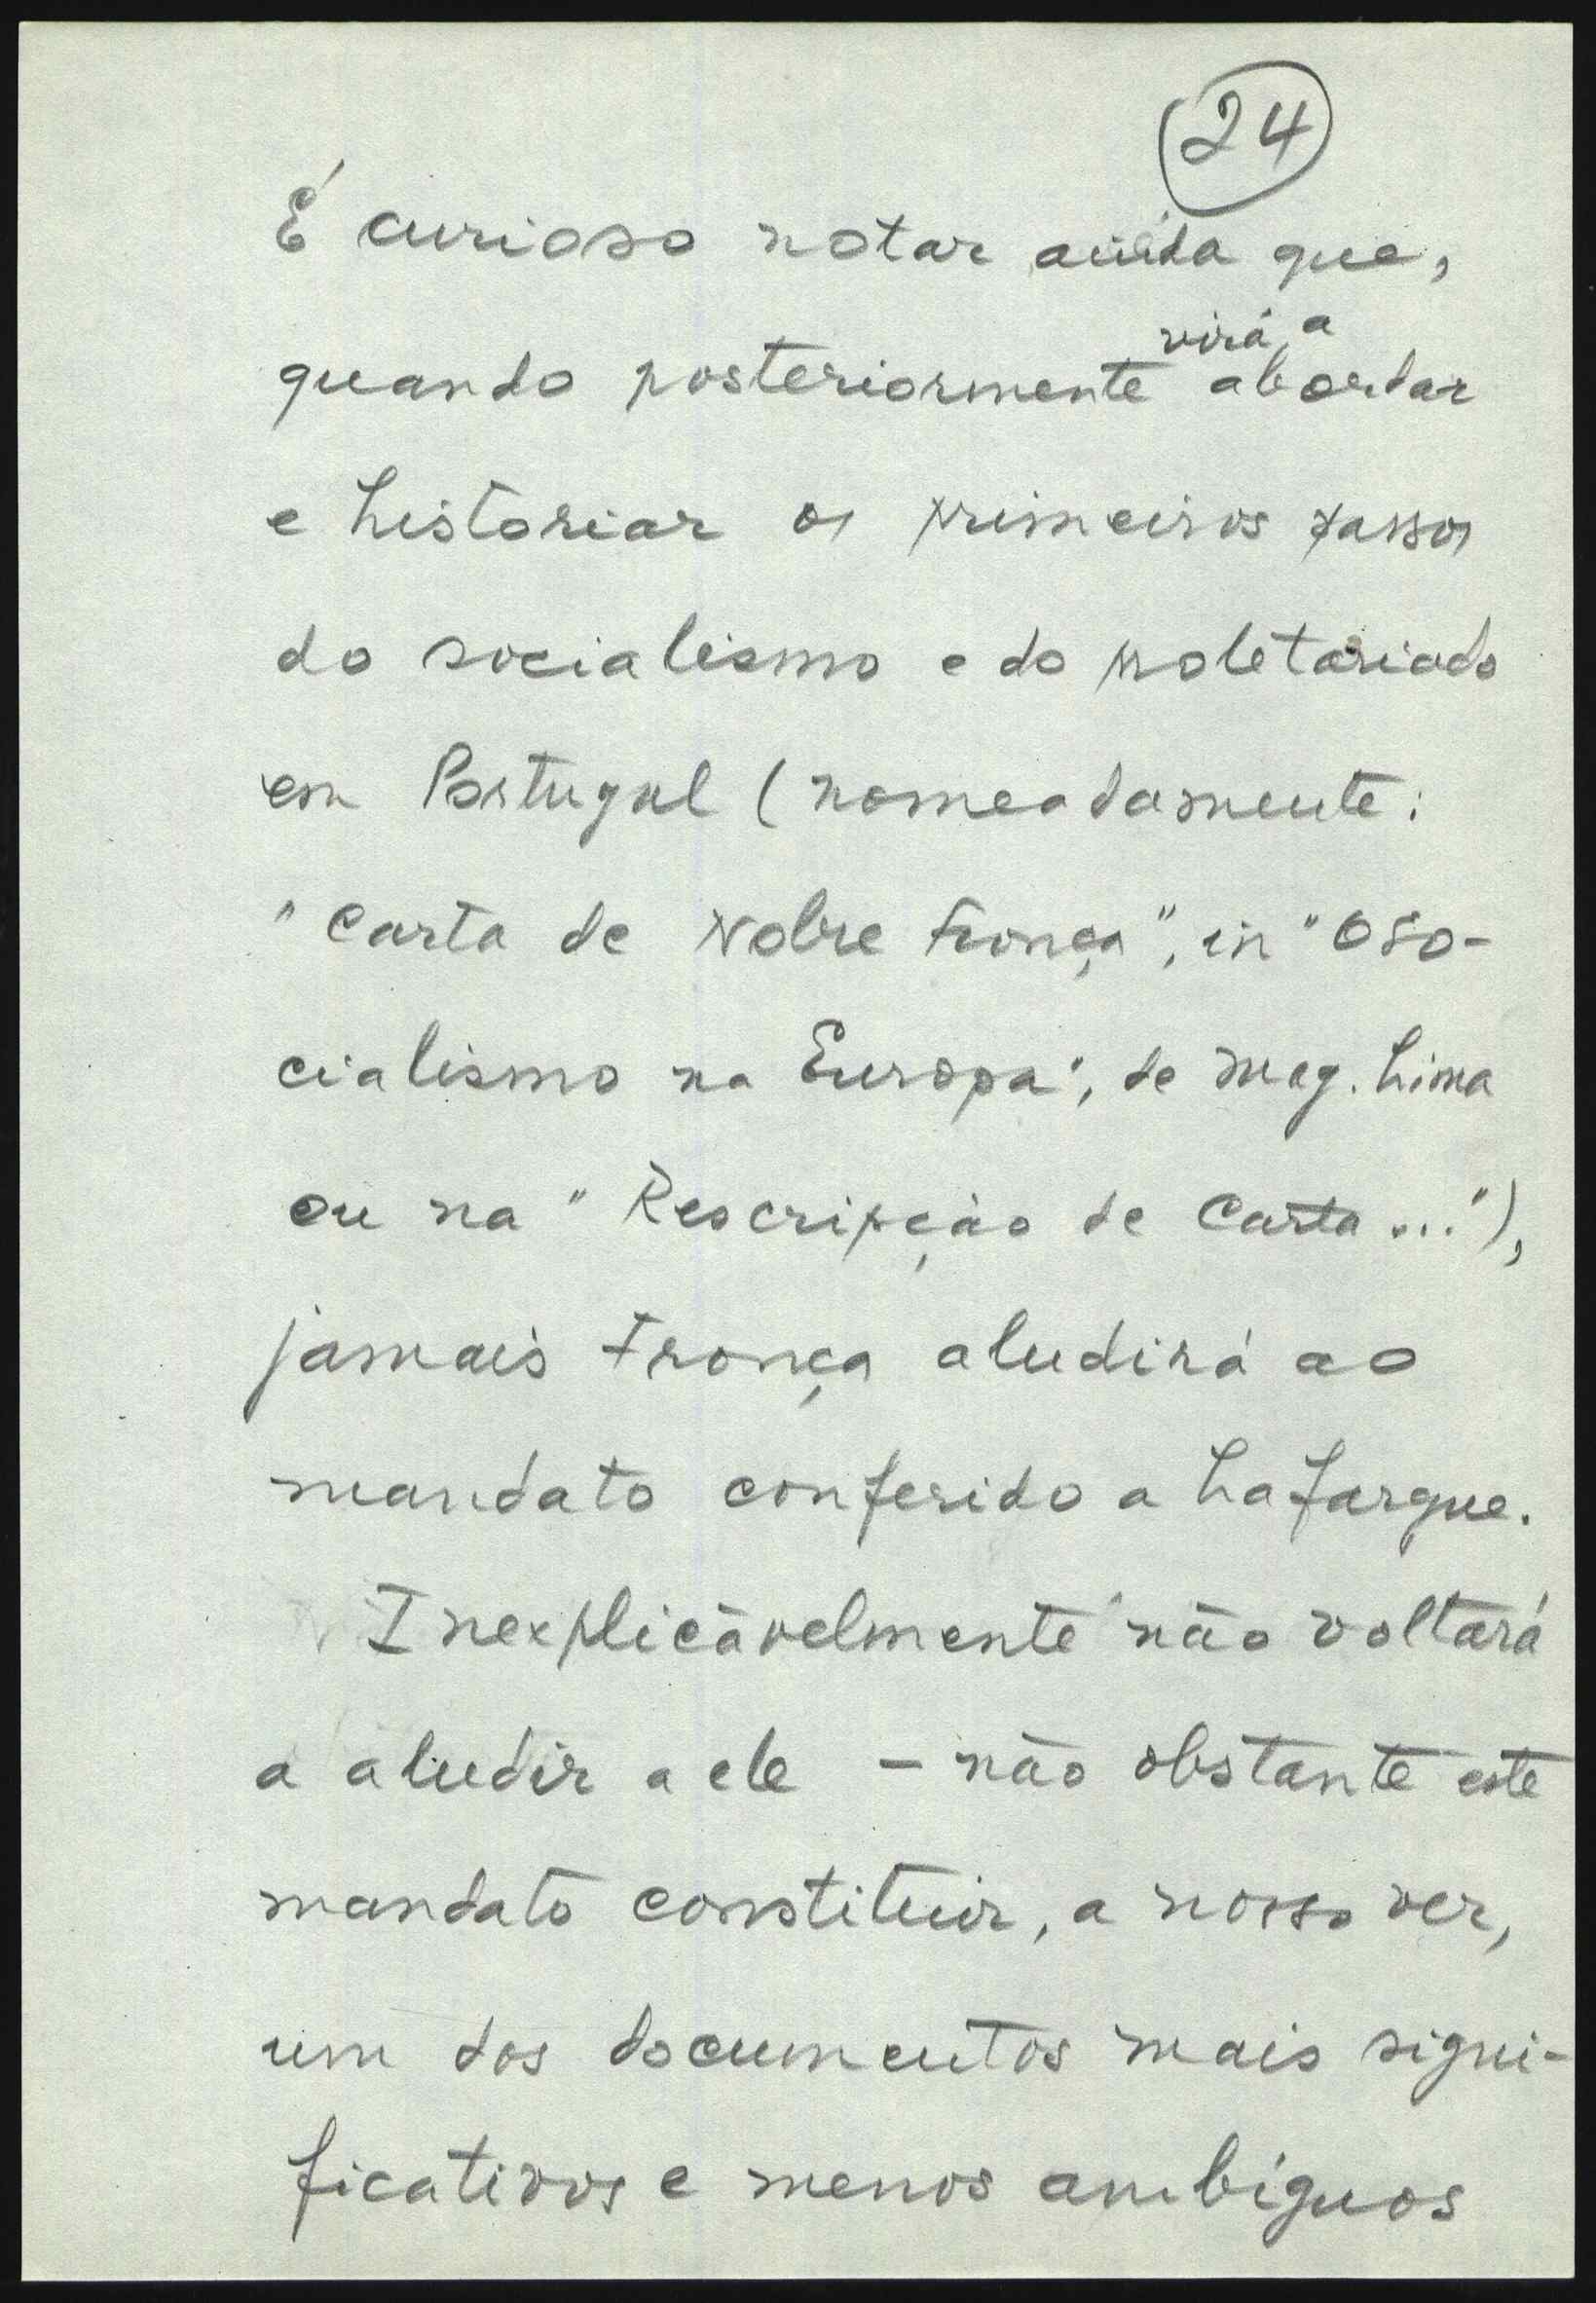 24
É curioso notar ainda que,
virá a
quando posteriormente abordar
e historiar os primeiros passos
do socialismo e do proletariado
em Portugal (nomeadamente:
"Carta de Nobre França", in "O So-
cialismo na Europa", de Mag. Lima
ou na "Rescripção de Carta..."),
jamais França aludirá ao
mandato conferido a Lafargue.
Inexplicàvelmente não voltará
a aludir a ele – não obstante este
mandato constituir, a nosso ver,
um dos documentos mais signi-
ficativos e menos ambíguos